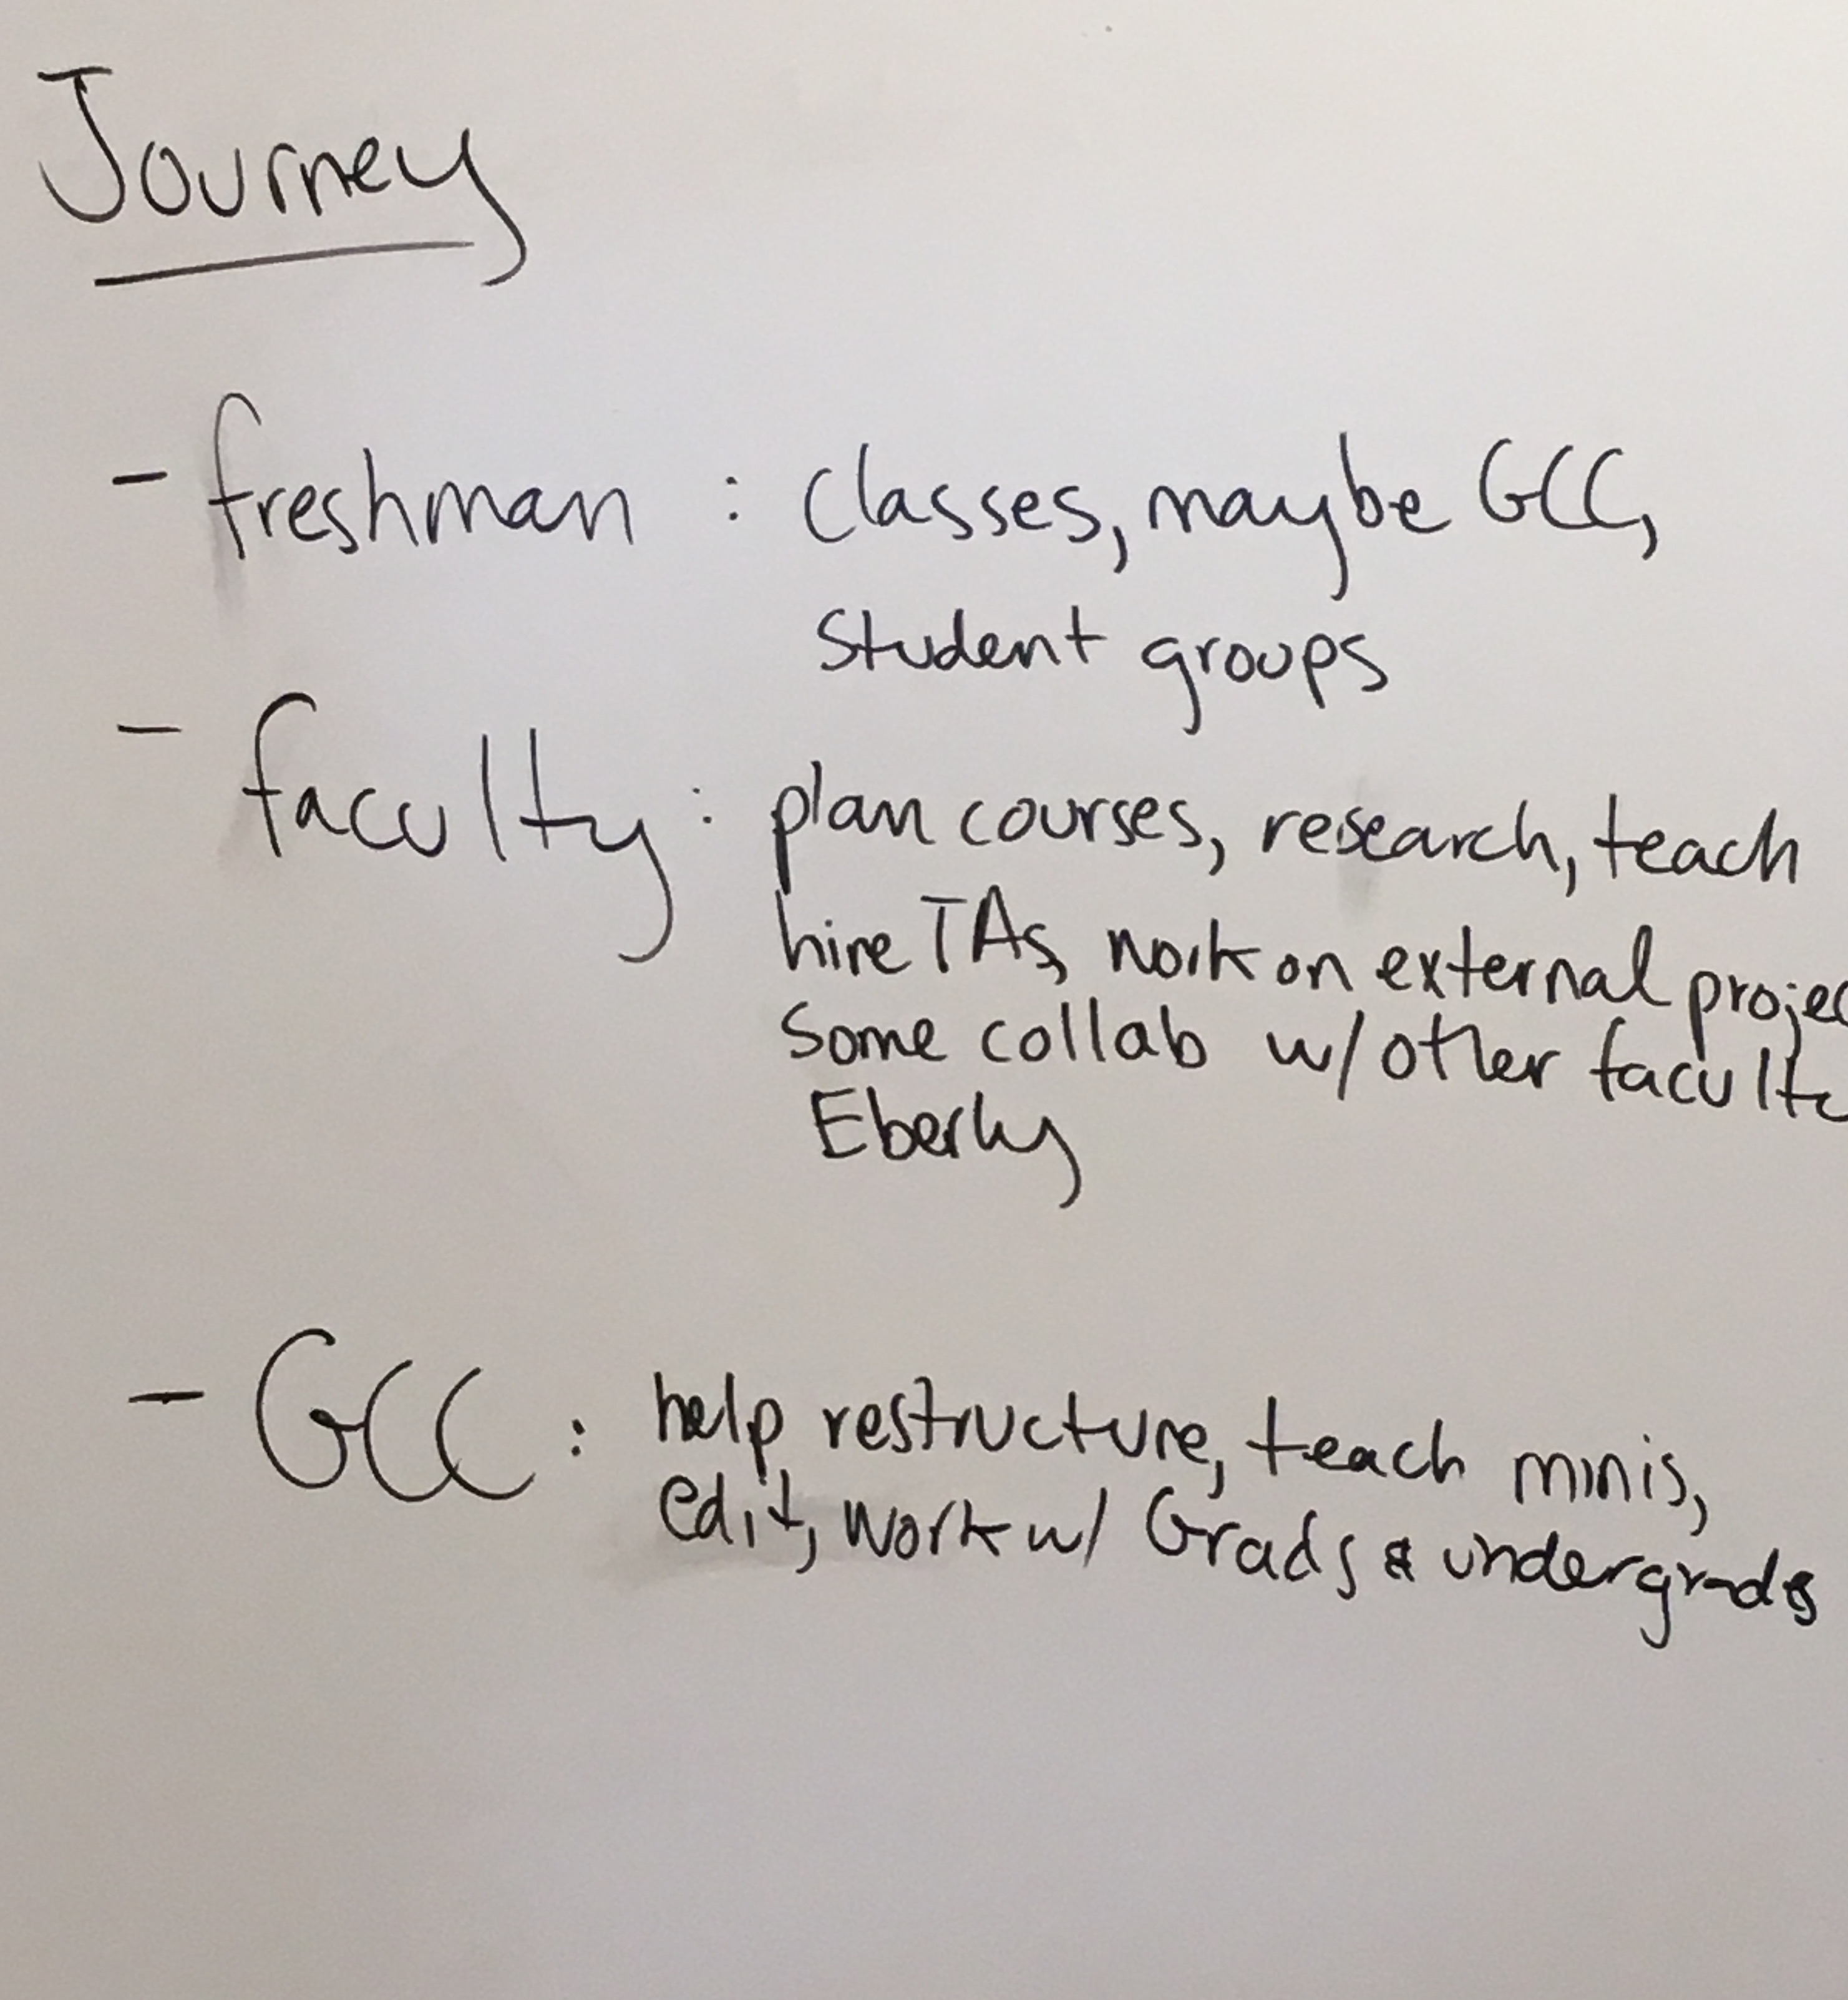 Journey
- freshman : classes, maybe GCC,
student groups
- faculty : plan courses, research, teach
hire TAs, work on external projec
Some collab w/ other faculty
Eberly
- GCC : help restructure, teach minis,
edit, work w/ Grads & undergrads